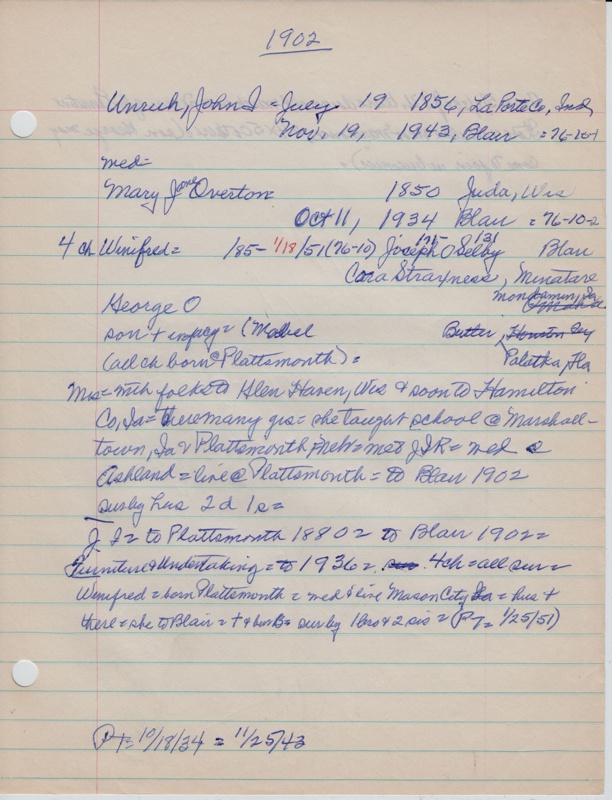 1902
Unruh, John I = July 19 1856, LaPorte Co, Ind
Nov. 19, 1943, Blair = 76-26-1
med=
Mary Jane Overton 1850 Juda, Wis
Oct 11, 1934 Blair = 76-10-2
4 ch Winifred = 185- 1/18/51 (76-10) Joseph O Selby Blair
Cora Straxness, Minatare
George O Mondamin, Ia
son + (Mabel Butler, Houston
(all ch born @ Plattsmouth) = Palatka, Fla
Mrs = with folks to Glen Haven, Wis & soon to Hamilton
Co, Ia = there many yrs = she taught school @ Marshall-
town, Ia & Plattsmouth, Nebr = met J I R = med @
Ashland = live @ Plattsmouth = to Blair 1902
surby hus 2 d 1 s =
J I = to Plattsmouth 1880 = to Blair 1902 =
Furniture & Undertaking = to 1936 = 4 ch = all sur =
Winifred = born Plattsmouth = med & live Mason City Ia = hus +
there = she to Blair = + & bur B = sur by 1 bro & 2 sis = (PT = 1/25/51)
PT = 10/18/34 = 11/25/43